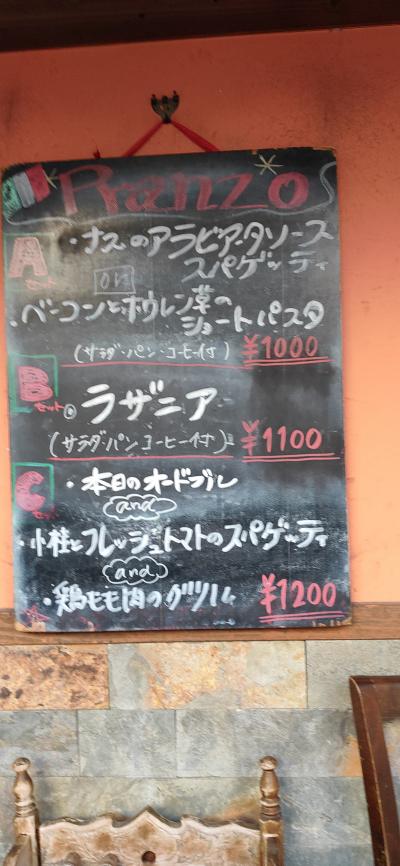 Pranzo
A セット
・ナスのアラビアータソース
スパゲッティ
or
・ベーコンとホウレン草の
ショートパスタ
(サラダ・パン・コーヒー付) ¥1000
B セット
ラザニア
(サラダ・パン コーヒー付) ¥1100
C セット
・本日のオードブル
and
・小柱とフレッシュトマトのスパゲッティ
and
・鶏もも肉のグリル ¥1200